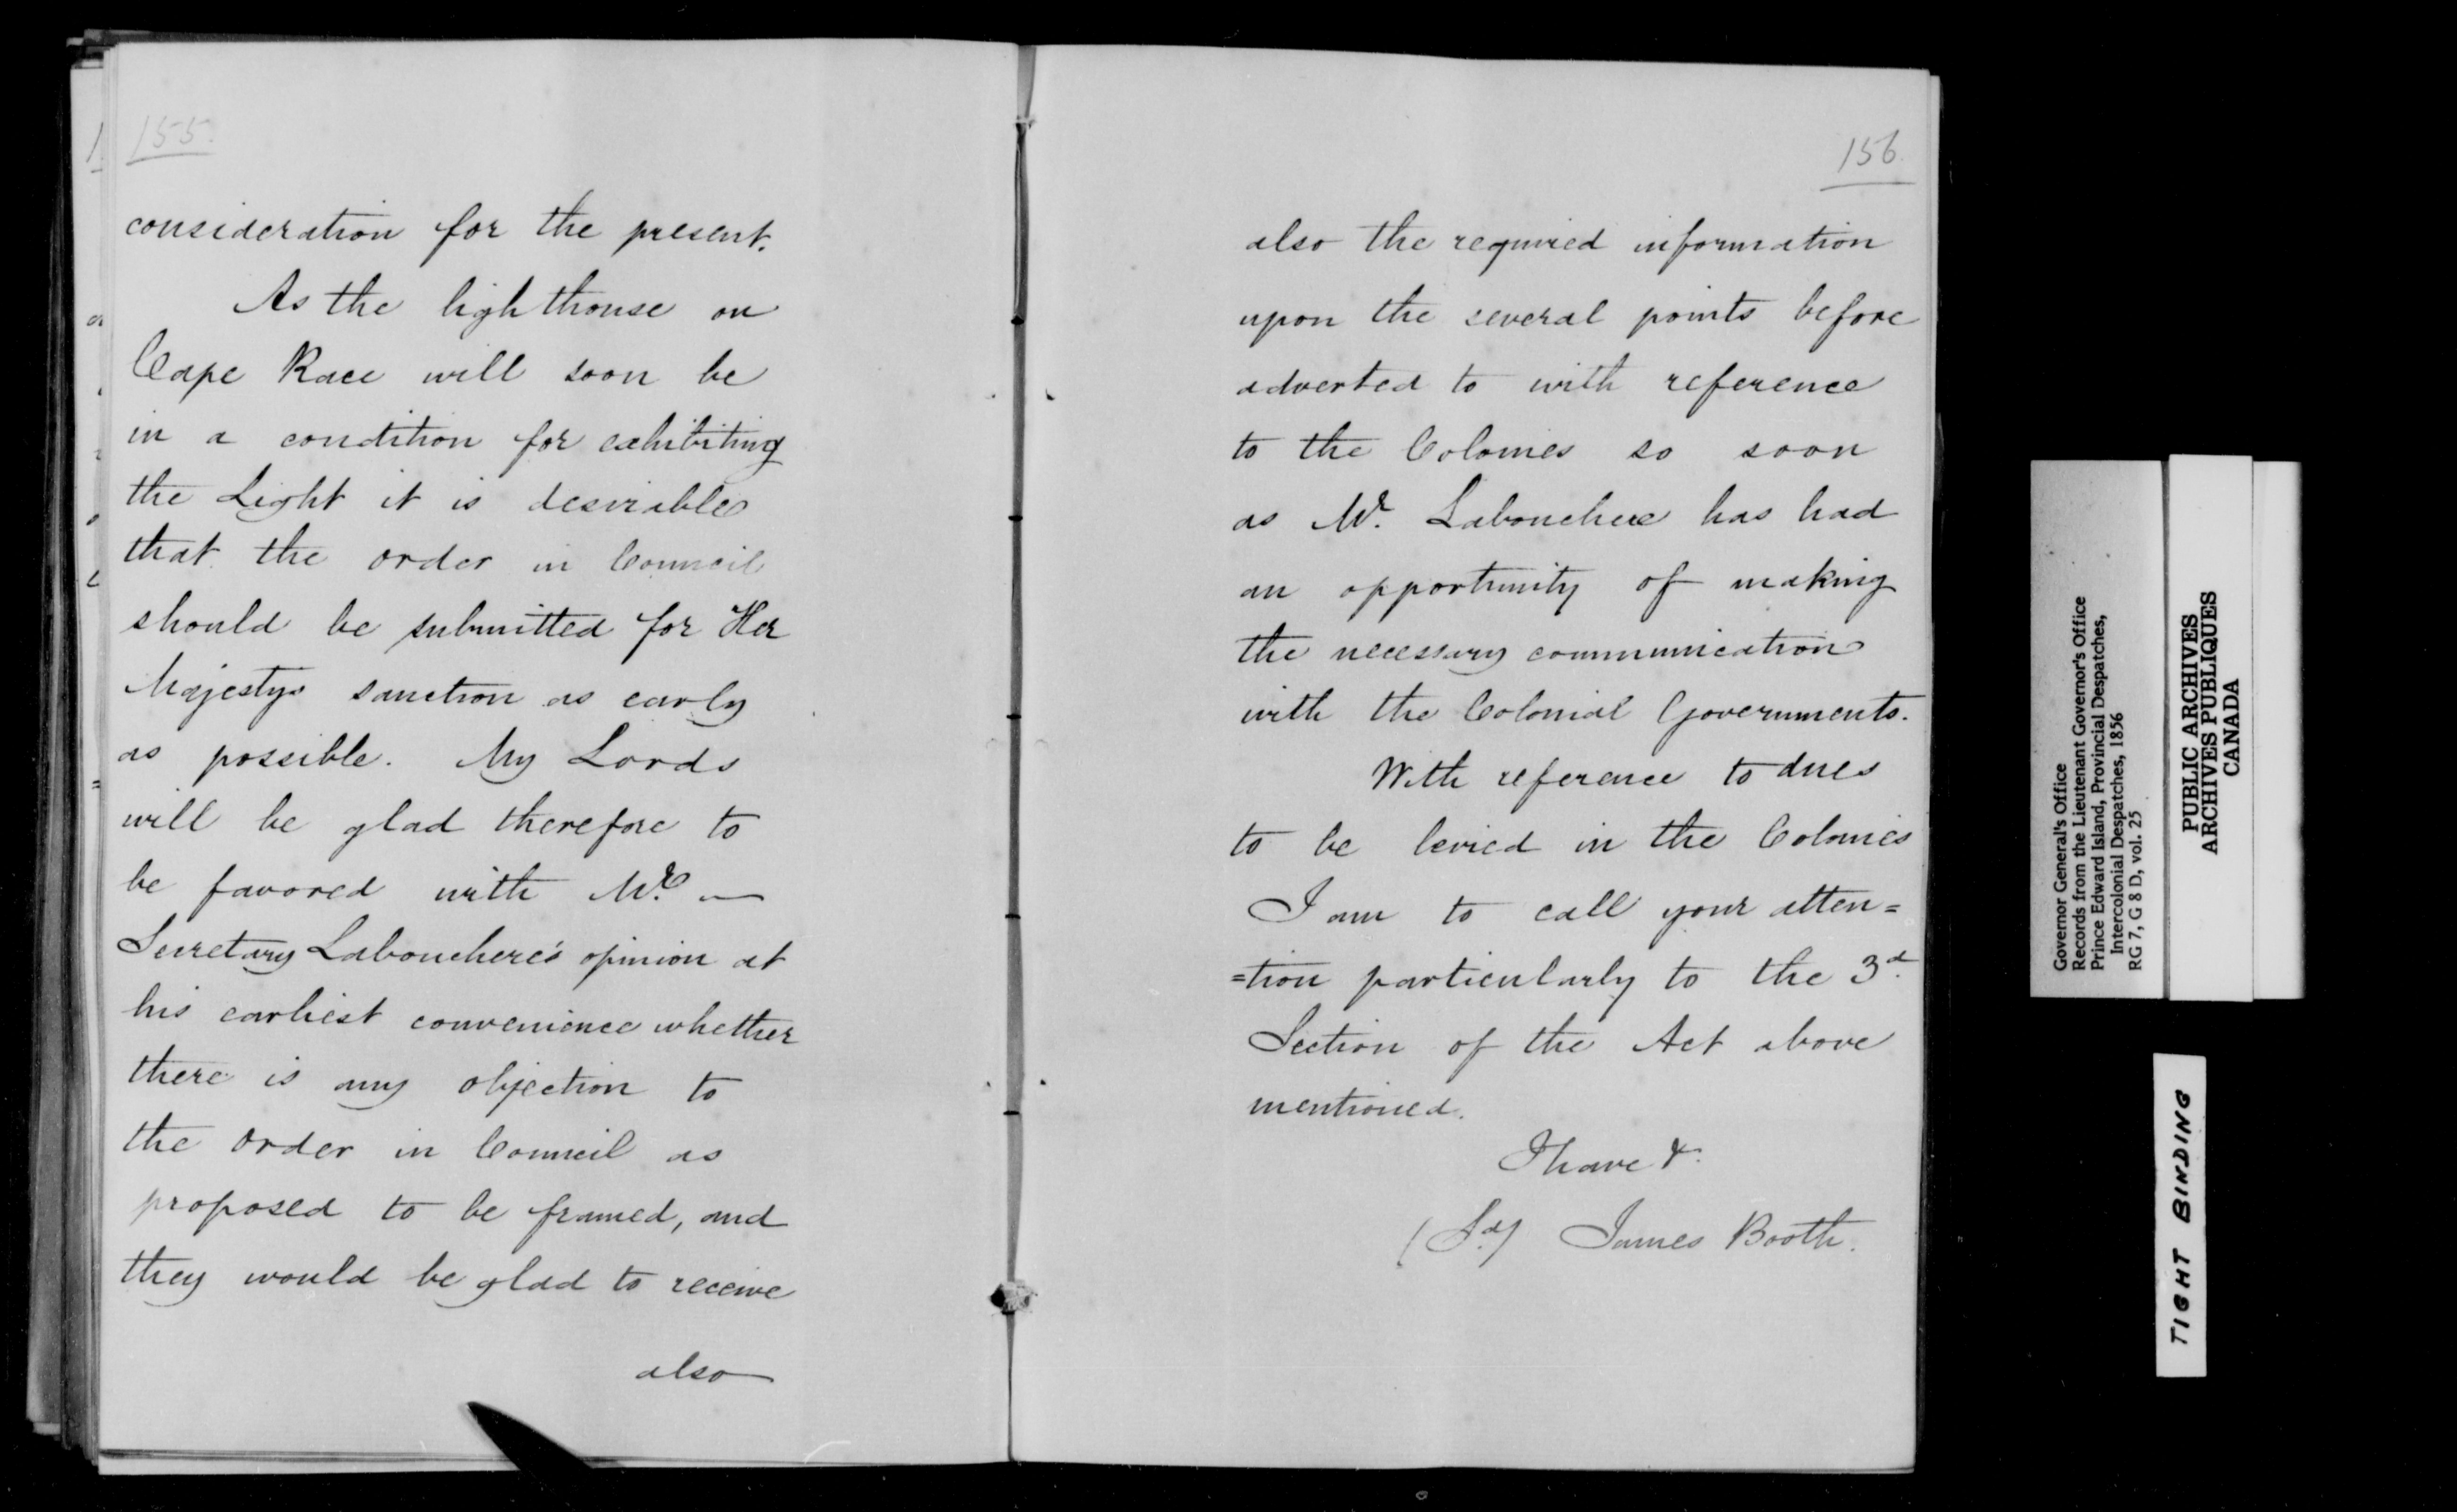 155.
consideration for the present.
As the lighthouse on
Cape Race will soon be
in a condition for exhibiting
the Light it is desirable
that the order in Council
should be submitted for Her
Majestys sanction as early
as possible. My Lords
will be glad therefore to
be favored with Mr. —
Secretary Labouchere's opinion at
his earliest convenience whether
there is any objection to
the order in Council as
proposed to be framed, and
they would be glad to receive
also
156.
also the required information
upon the several points before
adverted to with reference
to the Colonies so soon
as Mr. Labouchere has had
an opportunity of making
the necessary communication
with the Colonial Governments.
With reference to dues
to be levied in the Colonies
I am to call your atten=
=tion particularly to the 3d.
Section of the Act above
mentioned.
I have &.
(Sd) James Booth.
Governor General's Office
Records from the Lieutenant Governor's Office
Prince Edward Island, Provincial Despatches,
Intercolonial Despatches, 1856
RG 7, G 8 D, vol. 25
PUBLIC ARCHIVES
ARCHIVES PUBLIQUES
CANADA
TIGHT BINDING